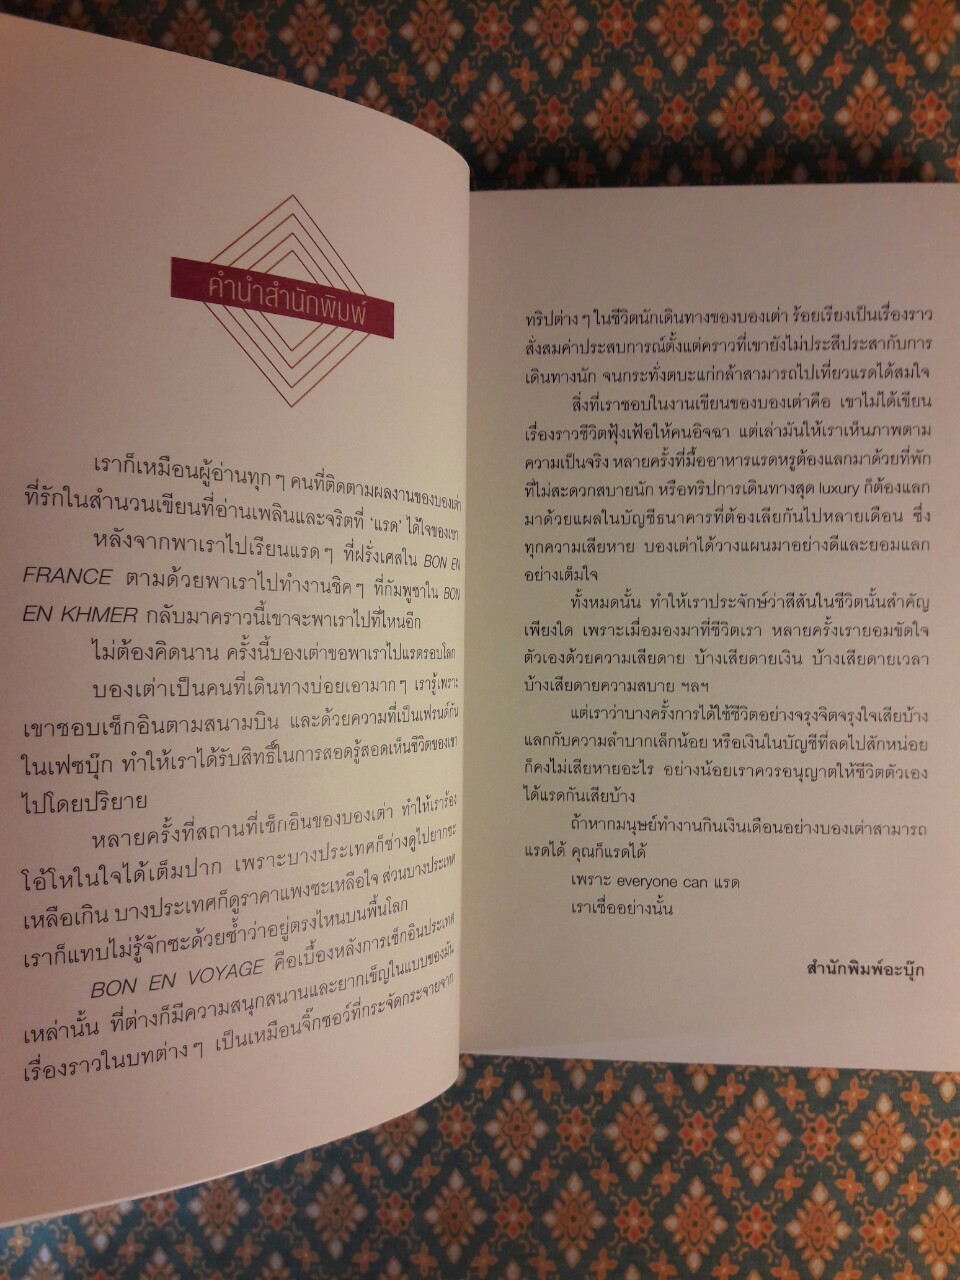 คำนำสำนักพิมพ์
เราก็เหมือนผู้อ่านทุก ๆ คนที่ติดตามผลงานของบองเต่า
ที่รักในสำนวนเขียนที่อ่านเพลินและจริตที่ ‘แรด’ ได้ใจของเขา
หลังจากพาเราไปเรียนแรด ๆ ที่ฝรั่งเศสใน BON EN
FRANCE ตามด้วยพาเราไปทำงานชิค ๆ ที่กัมพูชาใน BON
EN KHMER กลับมาคราวนี้เขาจะพาเราไปที่ไหนอีก
ไม่ต้องคิดนาน ครั้งนี้บองเต่าขอพาเราไปแรดรอบโลก
บองเต่าเป็นคนที่เดินทางบ่อยเอามาก ๆ เรารู้เพราะ
เขาชอบเช็กอินตามสนามบิน และด้วยความที่เป็นเฟรนด์กัน
ในเฟซบุ๊ก ทำให้เราได้รับสิทธิ์ในการสอดรู้สอดเห็นชีวิตของเขา
ไปโดยปริยาย
หลายครั้งที่สถานที่เช็กอินของบองเต่า ทำให้เราร้อง
โอ้โหในใจได้เต็มปาก เพราะบางประเทศก็ช่างดูไปยากซะ
เหลือเกิน บางประเทศก็ดูราคาแพงซะเหลือใจ ส่วนบางประเทศ
เราก็แทบไม่รู้จักซะด้วยซ้ำว่าอยู่ตรงไหนบนพื้นโลก
BON EN VOYAGE คือเบื้องหลังการเช็กอินประเทศ
เหล่านั้น ที่ต่างก็มีความสนุกสนานและยากเข็ญในแบบของมัน
เรื่องราวในบทต่าง ๆ เป็นเหมือนจิ๊กซอว์ที่กระจัดกระจายจาก
ทริปต่าง ๆ ในชีวิตนักเดินทางของบองเต่า ร้อยเรียงเป็นเรื่องราว
สั่งสมค่าประสบการณ์ตั้งแต่คราวที่เขายังไม่ประสีประสากับการ
เดินทางนัก จนกระทั่งตบะแก่กล้าสามารถไปเที่ยวแรดได้สมใจ
สิ่งที่เราชอบในงานเขียนของบองเต่าคือ เขาไม่ได้เขียน
เรื่องราวชีวิตฟุ้งเฟ้อให้คนอิจฉา แต่เล่ามันให้เราเห็นภาพตาม
ความเป็นจริง หลายครั้งที่มื้ออาหารแรดหรูต้องแลกมาด้วยที่พัก
ที่ไม่สะดวกสบายนัก หรือทริปการเดินทางสุด luxury ก็ต้องแลก
มาด้วยแผลในบัญชีธนาคารที่ต้องเลียกันไปหลายเดือน ซึ่ง
ทุกความเสียหาย บองเต่าได้วางแผนมาอย่างดีและยอมแลก
อย่างเต็มใจ
ทั้งหมดนั้น ทำให้เราประจักษ์ว่าสีสันในชีวิตนั้นสำคัญ
เพียงใด เพราะเมื่อมองมาที่ชีวิตเรา หลายครั้งเรายอมขัดใจ
ตัวเองด้วยความเสียดาย บ้างเสียดายเงิน บ้างเสียดายเวลา
บ้างเสียดายความสบาย ฯลฯ
แต่เราว่าบางครั้งการได้ใช้ชีวิตอย่างจรุงจิตจรุงใจเสียบ้าง
แลกกับความลำบากเล็กน้อย หรือเงินในบัญชีที่ลดไปสักหน่อย
ก็คงไม่เสียหายอะไร อย่างน้อยเราควรอนุญาตให้ชีวิตตัวเอง
ได้แรดกันเสียบ้าง
ถ้าหากมนุษย์ทำงานกินเงินเดือนอย่างบองเต่าสามารถ
แรดได้ คุณก็แรดได้
เพราะ everyone can แรด
เราเชื่ออย่างนั้น
สำนักพิมพ์อะบุ๊ก